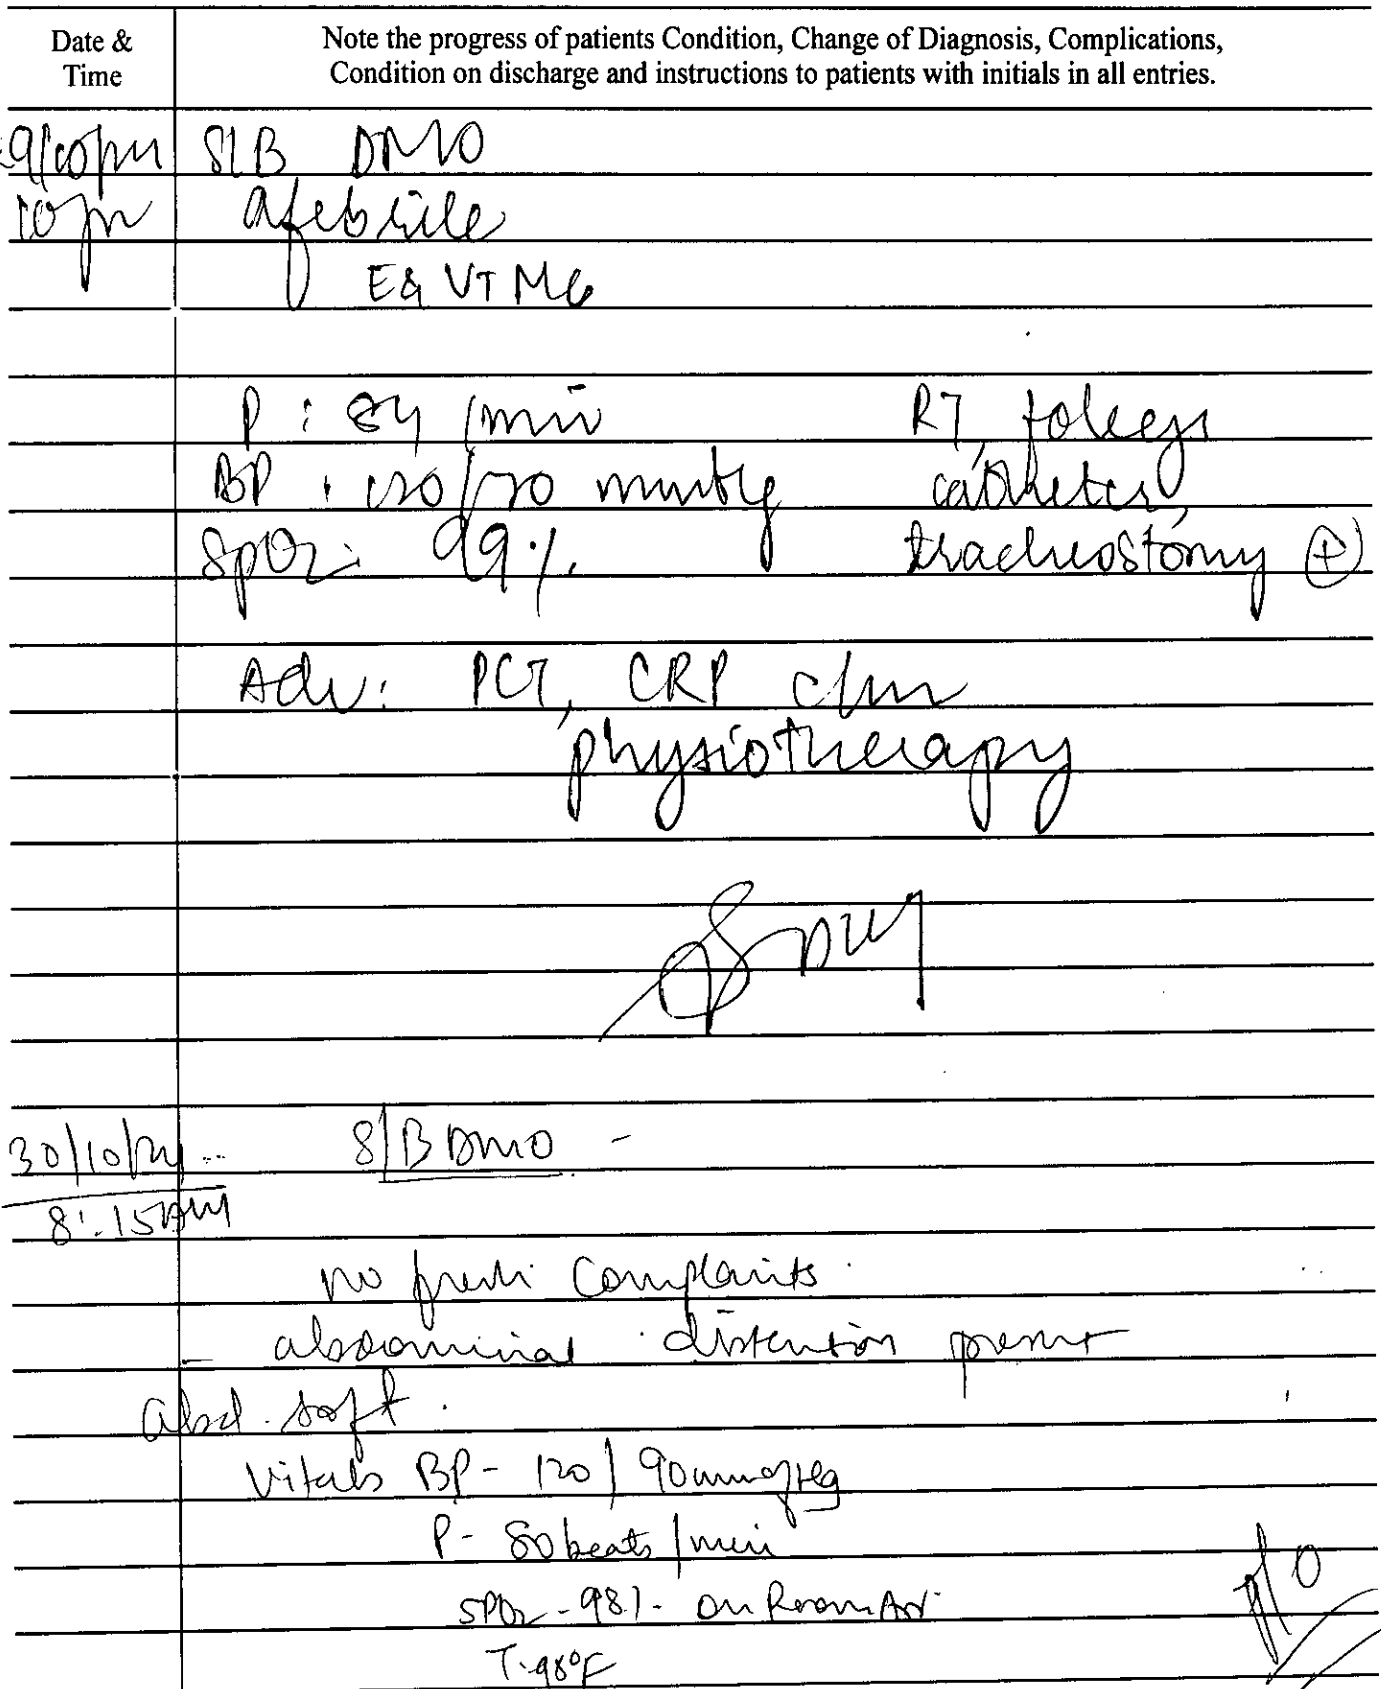 Date & Time
Note the progress of patients Condition, Change of Diagnosis, Complications,
Condition on discharge and instructions to patients with initials in all entries.
S/B DMO
10pm afebrile
E4 VT M6
P : 84 /min RT, foleys
BP : 120/70 mmHg catheter,
SpO2: 99% tracheostomy (+)
Adv: PCT, CRP c/m
physiotherapy
30/10/24 S/B DMO -
8:15AM
no fresh Complaints
- abdominal distention present
abd. soft.
Vitals BP - 120/90mmofHg
P - 80beats/min
SPO2 - 98% - on Room Air
T-98°F
P/O